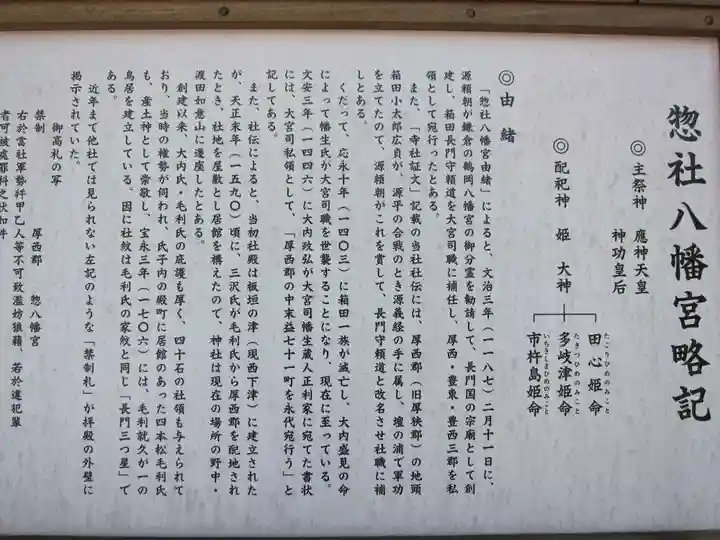 惣社八幡宮略記
◎主祭神 應神天皇
神功皇后
◎配祀神 姫大神
田心姫命
たごりひめのみこと
多岐津姫命
たきつひめのみこと
市杵島姫命
いちきしまひめのみこと
◎由緒
「惣社八幡宮由緒」によると、文治三年(一一八七)二月十一日に、
源頼朝が鎌倉の鶴岡八幡宮の御分霊を勧請して、長門国の宗廟として創
建し、箱田長門守頼道を大宮司職に補任し、厚西・豊東・豊西三郡を私
領として宛行ったとある。
また、「寺社証文」記載の当社社伝には、厚西郡(旧厚狭郡)の地頭
箱田小太郎広貞が、源平の合戦のとき源義経の手に属し、壇の浦で軍功
を立てたので、源頼朝がこれを賞して、長門守頼道と改名させ社職に補
しとある。
くだって、応永十年(一四〇三)に箱田一族が滅亡し、大内盛見の命
によって幡生氏が大宮司職を世襲することになり、現在に至っている。
文安三年(一四四六)に大内政弘が大宮司幡生蔵人正利家に宛てた書状
には、大宮司私領として、「厚西郡の中末益七十一町を永代宛行う」と
記してある。
また、社伝によると、当初社殿は板垣の津(現西下津)に建立された
が、天正末年(一五九〇)頃に、三沢氏が毛利氏から厚西郡を配地され
たとき、社地を屋敷とし居館を構えたので、神社は現在の場所の野中・
渡田如意山に遷座したとある。
創建以来、大内氏・毛利氏の庇護も厚く、四十石の社領も与えられて
おり、当時の権勢が伺われ、氏子内の殿町に居館のあった四本松毛利氏
も、産土神として崇敬し、宝永三年(一七〇六)には、毛利就久が一の
鳥居を建立している。因に社紋は毛利氏の家紋と同じ「長門三つ星」で
ある。
近年まで他社では見られない左記のような「禁制札」が拝殿の外壁に
掲示されていた。
御高札の写
禁制 厚西郡 惣八幡宮
右於當社軍勢幷甲乙人等不可致濫妨狼藉、若於違犯輩
者可被處罪科之状如件